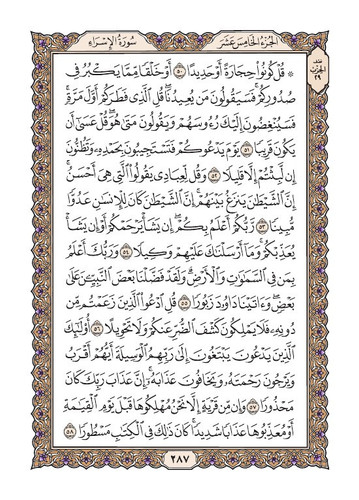 سُورَةُ الإِسْرَاءِ الجُزْءُ الخَامِسَ عَشَرَ
نصف
الحزب
٢٩
۞ قُلْ كُونُوا۟ حِجَارَةً أَوْ حَدِيدًا ۝٥٠ أَوْ خَلْقًا مِّمَّا يَكْبُرُ فِى
صُدُورِكُمْ ۚ فَسَيَقُولُونَ مَن يُعِيدُنَا ۖ قُلِ ٱلَّذِى فَطَرَكُمْ أَوَّلَ مَرَّةٍ ۚ
فَسَيُنْغِضُونَ إِلَيْكَ رُءُوسَهُمْ وَيَقُولُونَ مَتَىٰ هُوَ ۖ قُلْ عَسَىٰٓ أَن
يَكُونَ قَرِيبًا ۝٥١ يَوْمَ يَدْعُوكُمْ فَتَسْتَجِيبُونَ بِحَمْدِهِۦ وَتَظُنُّونَ
إِن لَّبِثْتُمْ إِلَّا قَلِيلًا ۝٥٢ وَقُل لِّعِبَادِى يَقُولُوا۟ ٱلَّتِى هِىَ أَحْسَنُ ۚ
إِنَّ ٱلشَّيْطَـٰنَ يَنزَغُ بَيْنَهُمْ ۚ إِنَّ ٱلشَّيْطَـٰنَ كَانَ لِلْإِنسَـٰنِ عَدُوًّا
مُّبِينًا ۝٥٣ رَّبُّكُمْ أَعْلَمُ بِكُمْ ۖ إِن يَشَأْ يَرْحَمْكُمْ أَوْ إِن يَشَأْ
يُعَذِّبْكُمْ ۚ وَمَآ أَرْسَلْنَـٰكَ عَلَيْهِمْ وَكِيلًا ۝٥٤ وَرَبُّكَ أَعْلَمُ
بِمَن فِى ٱلسَّمَـٰوَٰتِ وَٱلْأَرْضِ ۗ وَلَقَدْ فَضَّلْنَا بَعْضَ ٱلنَّبِيِّـۧنَ عَلَىٰ
بَعْضٍ ۖ وَءَاتَيْنَا دَاوُۥدَ زَبُورًا ۝٥٥ قُلِ ٱدْعُوا۟ ٱلَّذِينَ زَعَمْتُم مِّن
دُونِهِۦ فَلَا يَمْلِكُونَ كَشْفَ ٱلضُّرِّ عَنكُمْ وَلَا تَحْوِيلًا ۝٥٦ أُو۟لَـٰٓئِكَ
ٱلَّذِينَ يَدْعُونَ يَبْتَغُونَ إِلَىٰ رَبِّهِمُ ٱلْوَسِيلَةَ أَيُّهُمْ أَقْرَبُ
وَيَرْجُونَ رَحْمَتَهُۥ وَيَخَافُونَ عَذَابَهُۥٓ ۚ إِنَّ عَذَابَ رَبِّكَ كَانَ
مَحْذُورًا ۝٥٧ وَإِن مِّن قَرْيَةٍ إِلَّا نَحْنُ مُهْلِكُوهَا قَبْلَ يَوْمِ ٱلْقِيَـٰمَةِ
أَوْ مُعَذِّبُوهَا عَذَابًا شَدِيدًا ۚ كَانَ ذَٰلِكَ فِى ٱلْكِتَـٰبِ مَسْطُورًا ۝٥٨
٢٨٧